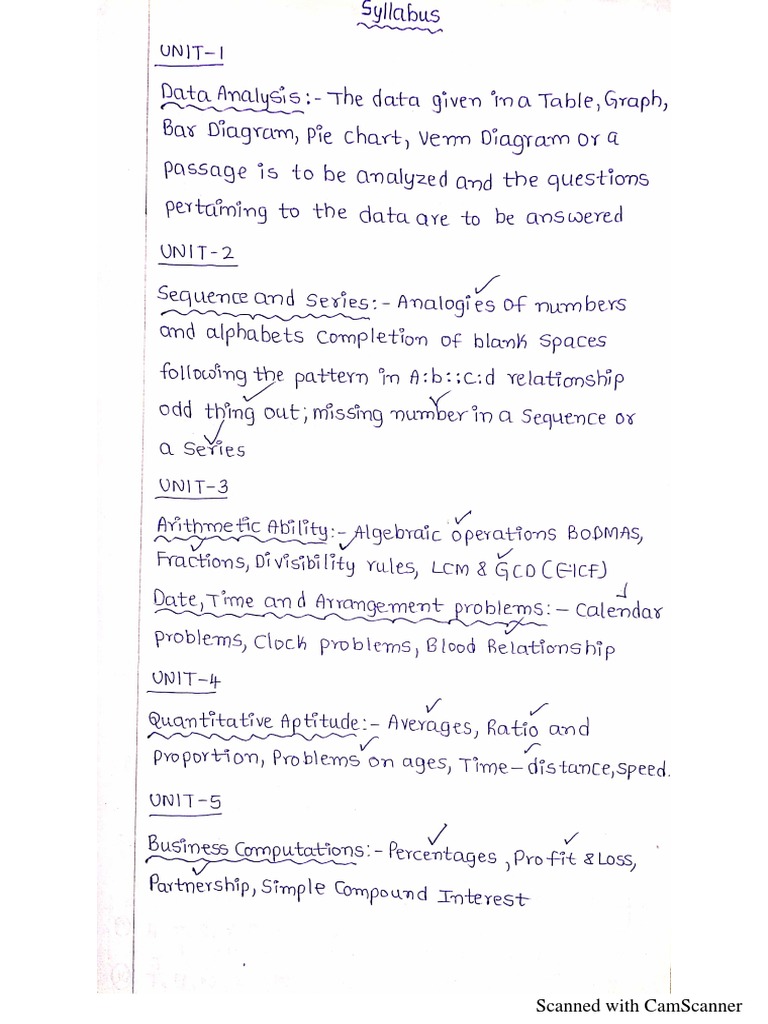 Syllabus
UNIT-1
Data Analysis:- The data given in a Table, Graph,
Bar Diagram, Pie chart, Venn Diagram or a
passage is to be analyzed and the questions
pertaining to the data are to be answered
UNIT-2
Sequence and Series:- Analogies of numbers
and alphabets completion of blank spaces
following the pattern in A:b::c:d relationship
odd thing out; missing number in a sequence or
a series
UNIT-3
Arithmetic Ability:- Algebraic operations BODMAS,
Fractions, Divisibility rules, LCM & GCD
Date, Time and Arrangement problems:- Calendar
problems, Clock problems, Blood Relationship
UNIT-4
Quantitative Aptitude:- Averages, Ratio and
proportion, Problems on ages, Time-distance, speed.
UNIT-5
Business Computations:- Percentages, Profit & Loss,
Partnership, Simple Compound Interest
Scanned with CamScanner